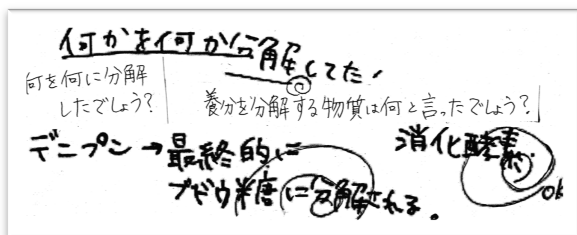 何かを何かが分解してた。
何を何に分解
したでしょう?
養分を分解する物質は何と言ったでしょう?
デンプン→最終的に
ブドウ糖に分解される。
消化酵素
OK